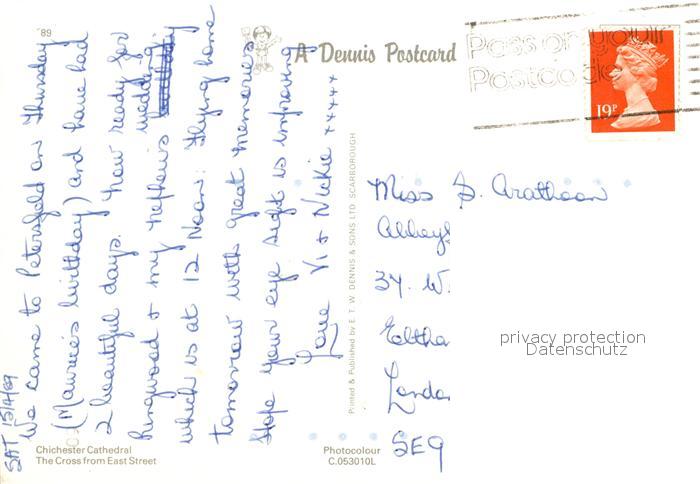 '89
A Dennis Postcard
Pass on your
Postcode
19P
SAT 15/4/89
We came to Petersfield on Thursday
(Maurice's birthday) and have had
2 beautiful days. Now ready for
Ringwood & my nephew's wedding
which is at 12 Noon: Flying home
tomorrow with great memories
Hope your eye sight is improving
Love Vi & Nickie xxxxx
Printed & Published by E. T. W. DENNIS & SONS LTD. SCARBOROUGH
Miss D. Arathoon
Abbey
34. W.
Eltha
London
SE9
privacy protection
Datenschutz
Chichester Cathedral
The Cross from East Street
Photocolour
C.053010L